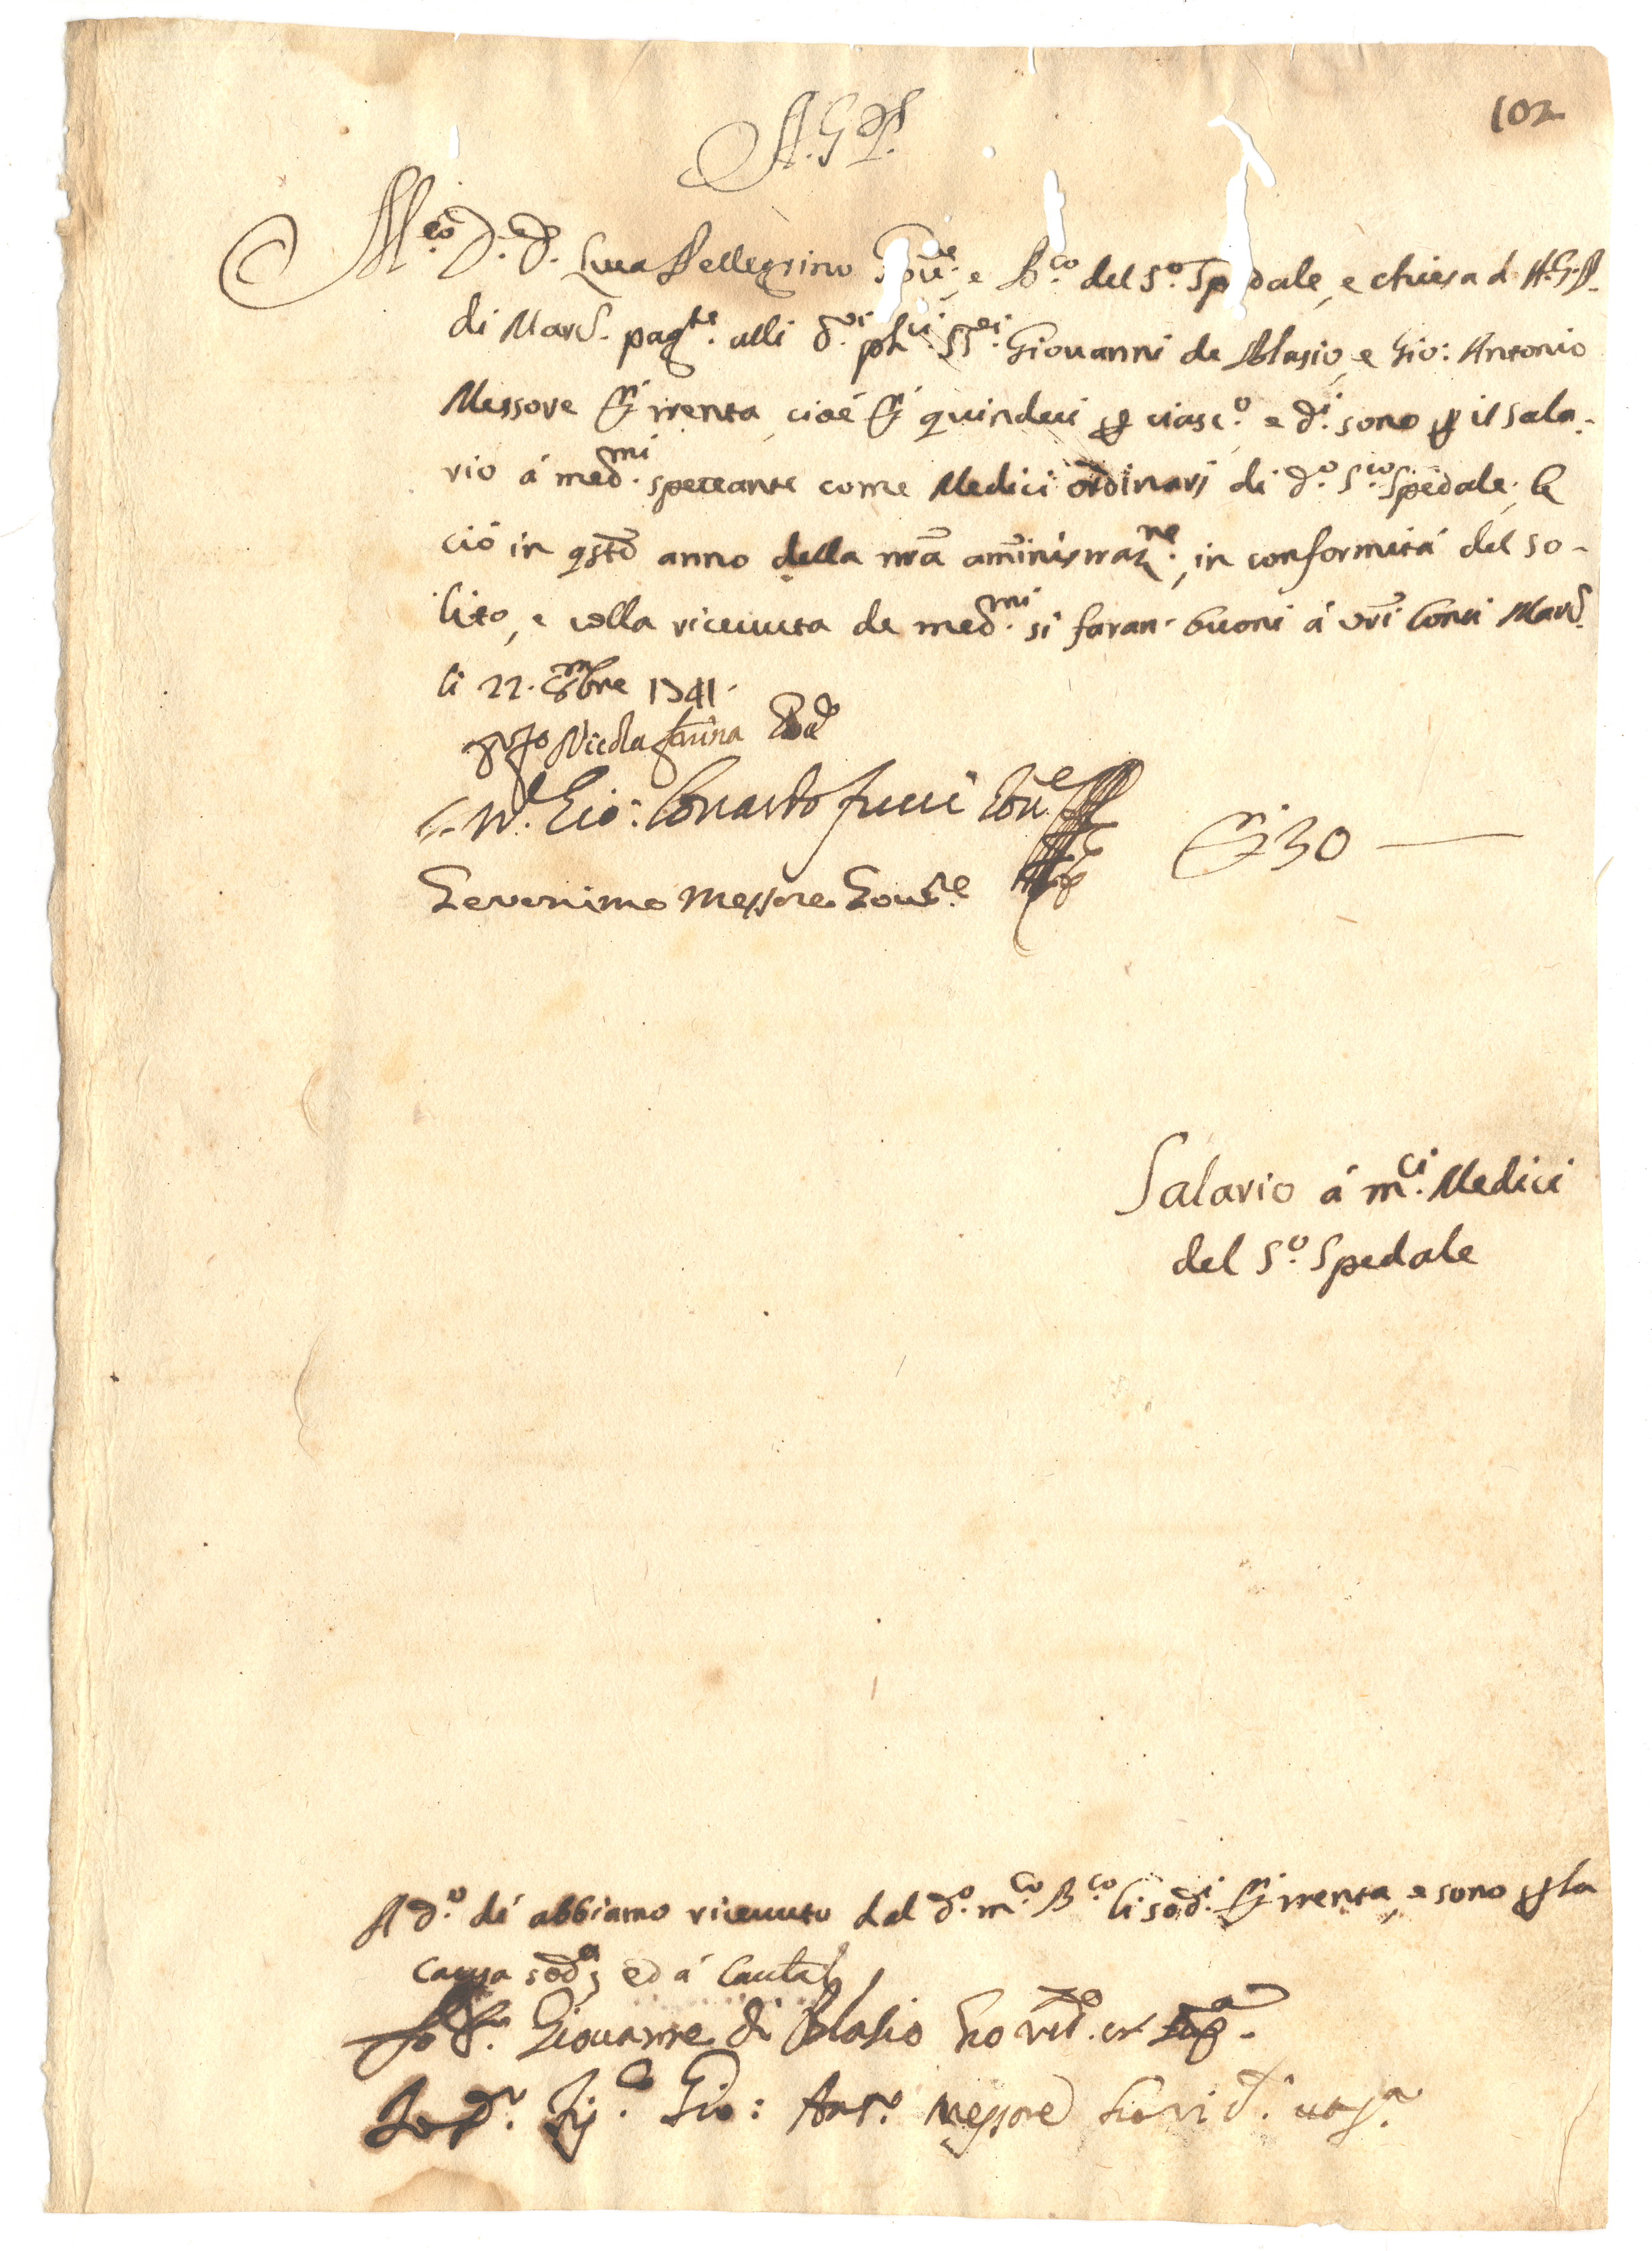 102
A.G.P.
M.co D. D. Luca Pellegrino e B.co del S.o Spedale, e chiesa d. A.G.P.
di Mard. pag.te alli d.ri Giovanni de Blasio, e Gio: Antonio
Messore trenta, cioé quindeci ciasc.o e d.i sono il sala-
rio á med.mi spettante come Medici ordinarj di d.o S.co Spedale. E
ció in qsto anno della nra aministraz.ne, in conformitá del so-
lito, e colla ricevuta de med.mi si faran. buoni á vri Conti Mard.
li 22. 1741.
Nicola
Gio: Conardo fucci
Geronimo Messore Gov.re
30
Salario á m.ci Medici
del S.o Spedale
A d.o dí abbiamo ricevuto dal d.o m.co B.co li sod.i trenta, e sono la
causa sod.a, ed á Cautal
Giovanne di Blasio ho
Gio: Ant.o Messore